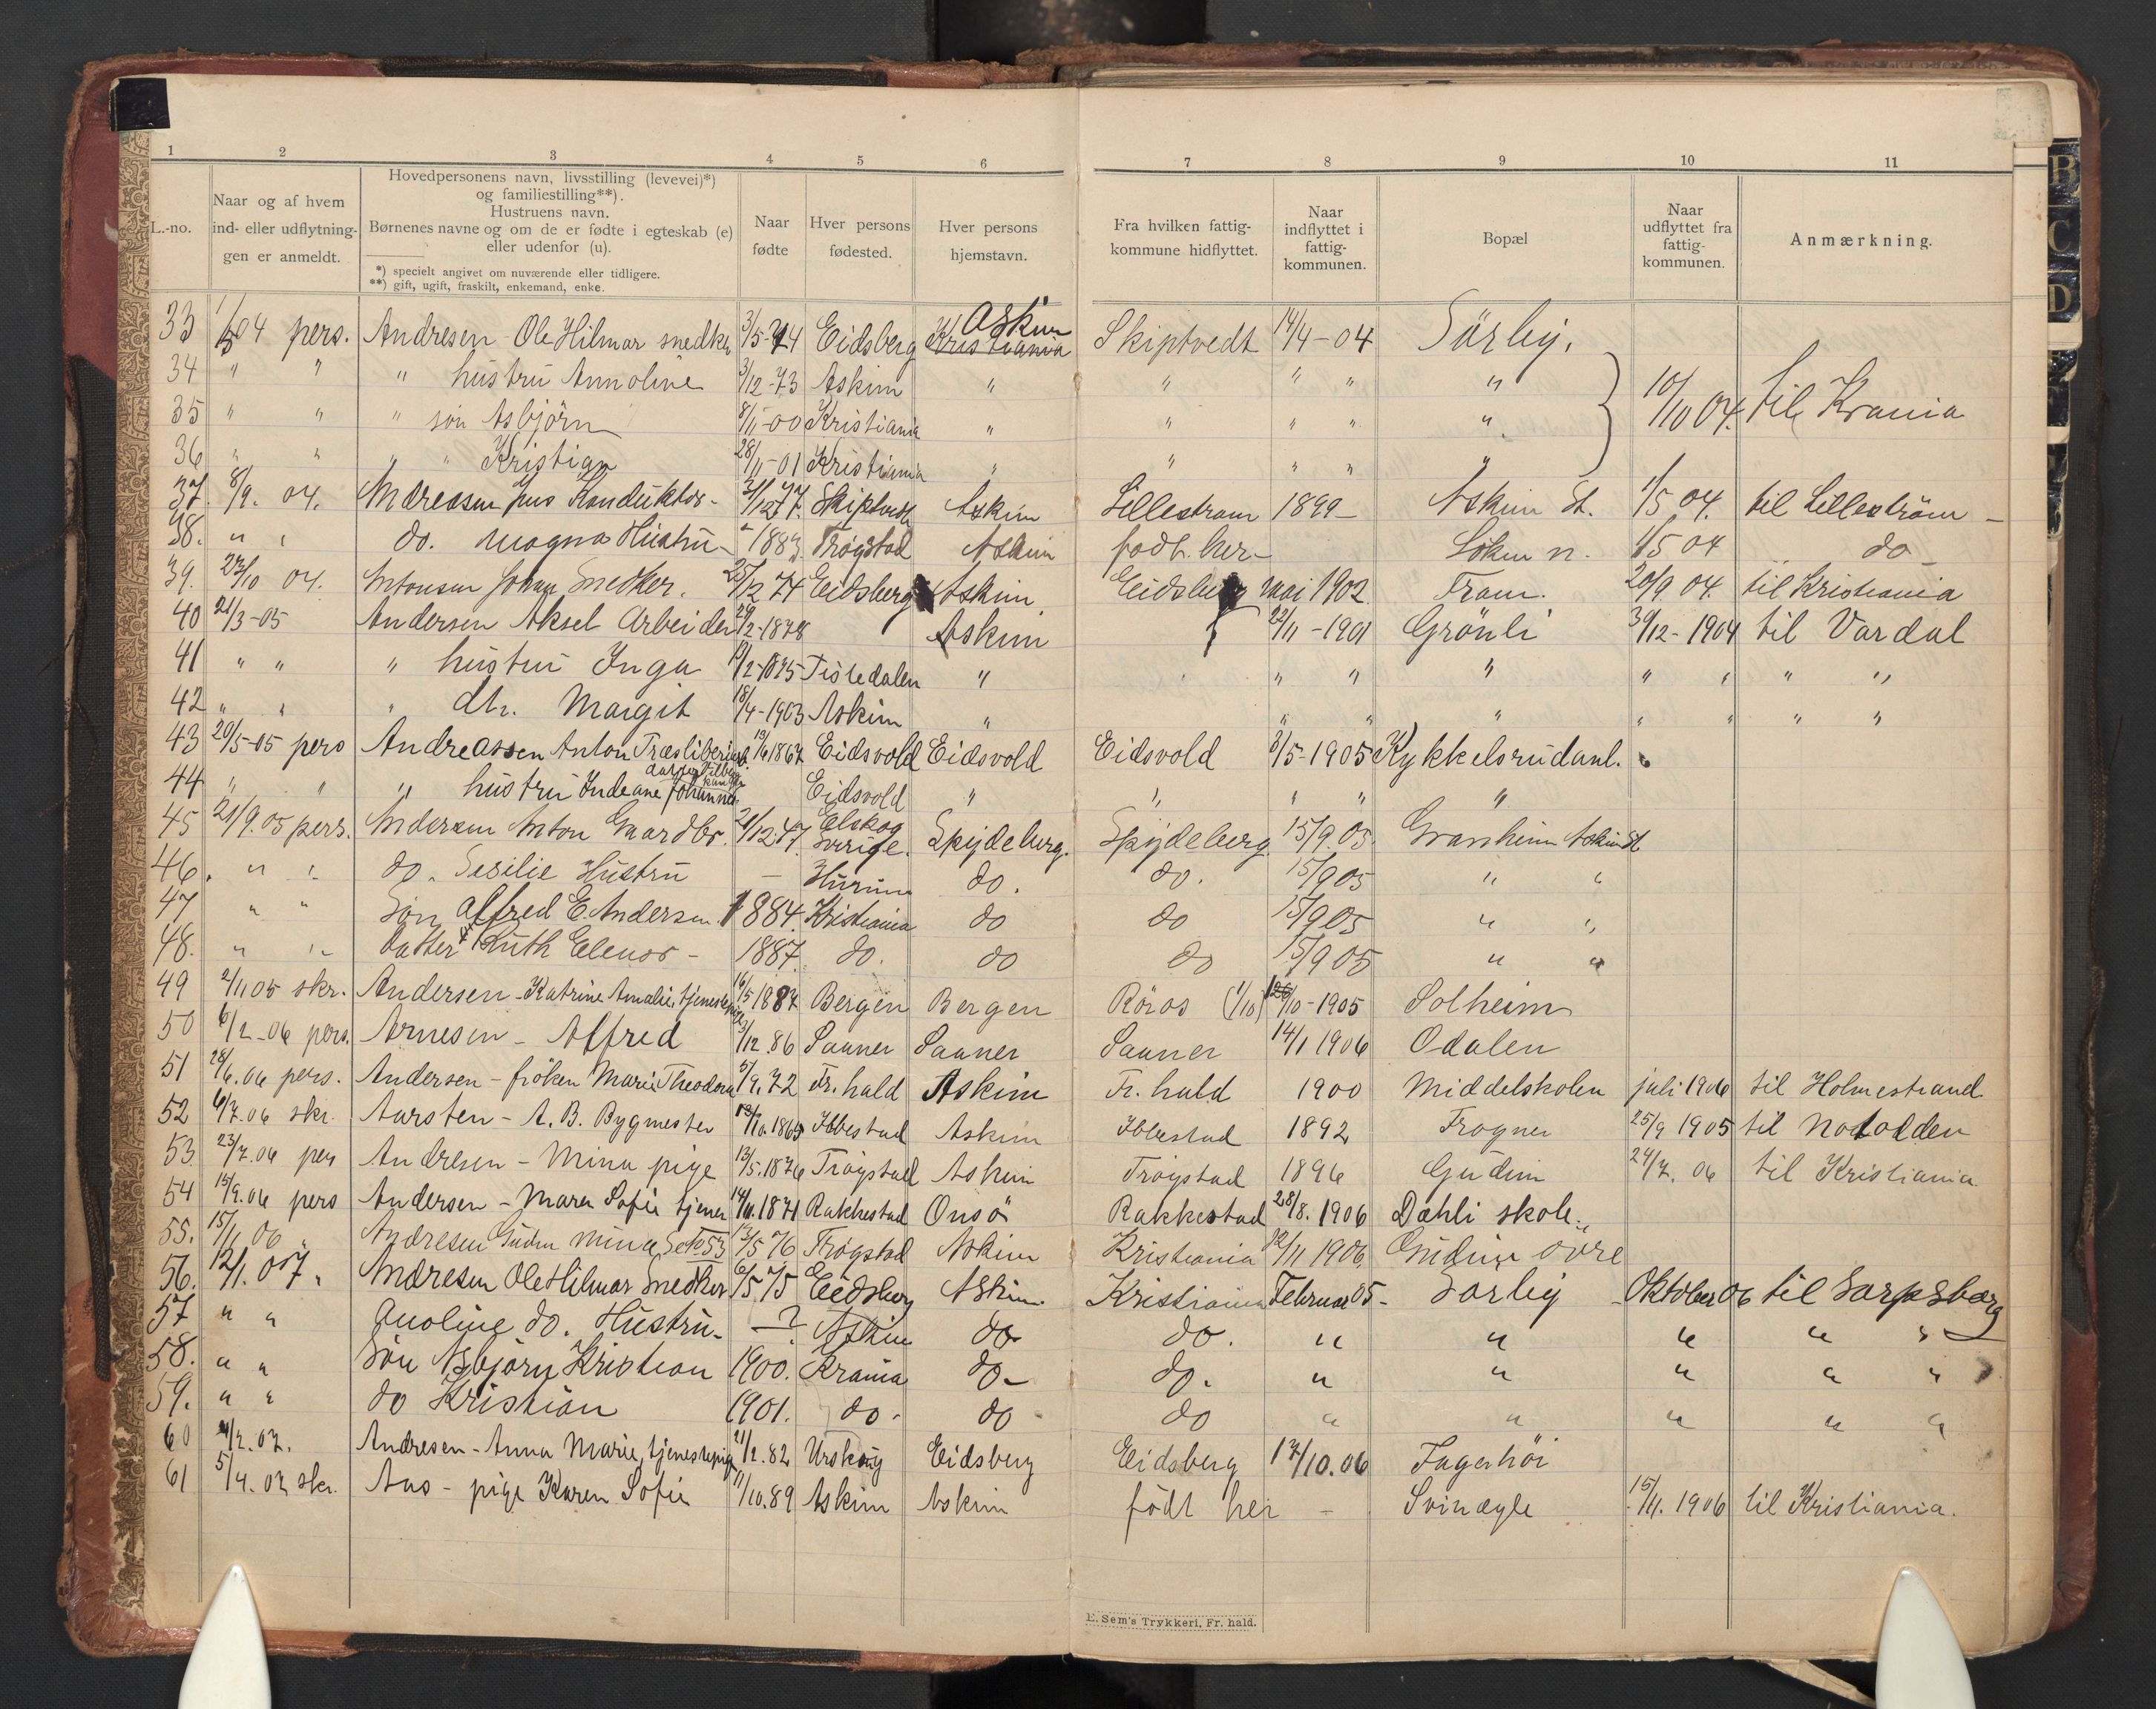 1 2 3 4 5 6 7 8 9 10 11
L.-no.
Naar og af hvem ind- eller udflytningen er anmeldt.
Hovedpersonens navn, livsstilling (levevei)*) og familiestilling**).
Hustruens navn.
Børnenes navne og om de er fødte i egteskab (e) eller udenfor (u).
*) specielt angivet om nuværende eller tidligere.
**) gift, ugift, fraskilt, enkemand, enke.
Naar fødte
Hver persons fødested.
Hver persons hjemstavn.
Fra hvilken fattigkommune hidflyttet.
Naar indflyttet i fattigkommunen.
Bopæl
Naar udflyttet fra fattigkommunen.
Anmærkning.
33 1/5 04 pers. Andresen Ole Hilmar snedker 3/5-74 Eidsberg Kristiania Askim Skiptvedt 14/4-04 Sörby.
34 " " " hustru Annoline 3/12-73 Askim " " " " " 10/10 04. til Krania
35 " " " sön Asbjörn 8/11-00 Kristiania " " " " "
36 " " " " Kristian 28/11-01 Kristiania " " " " "
37. 8/9. 04. Andreasen Jens Konduktör - 31/12 77. Skiptvedt Askim Lillestrøm 1899 - Askim St. 1/5 04. til Lilleström -
38. " " do. Magna Hustru - - 1883. Trøgstad Askim født her - Löken n. 1/5 04 do
39. 23/10 04. Antonsen Johan Snedker. 25/12 74 Eidsberg Askim. Eidsberg mai 1902 Fram. 20/9 04. til Kristiania
40 21/3-05 Andersen Aksel Arbeider 29/2-1878 Askim 22/11-1901 Grönli 30/12-1904 til Vardal
41 " " " hustru Inga 19/2-1875 Tistedalen " " " " " " " "
42 " " " dtr. Margit 18/4-1903 Askim " " " " " " " "
43 20/5-05 pers Andreassen Anton Træsliberiarb. 13/6 1867 Eidsvold Eidsvold Eidsvold 3/5-1905 Kykkelsrudanl.
44 " " " hustru Indeane Johanna Eidsvold " " " " "
45 21/9. 05 pers. Andersen Anton Gaardbr. 21/12.47. Elskog Sverige. Spydeberg. Spydeberg. 15/9. 05. Granheim Askim St
46. " " do. Sesilie Hustru - Hurum do. do. 15/9 05 " "
47 " " Sön Alfred E. Andersen 1884. Kristiania do do 15/9 05 " "
48. " " Datter Ruth Elenor - 1887. do. do do 15/9 05 " "
49 2/11 05 skr. Andersen - Katrine Amalie, tjenestepige 16/5 1887 Bergen Bergen Röros (1/10) /10-1905 Solheim
50 6/2-06 pers. Arnesen - Alfred 3/12.86 Saaner Saaner Saaner 14/1 1906 Odalen
51 28/6.06 pers. Andersen - fröken Marie Theodora 5/9.72 Fr. hald Askim Fr. hald 1900 Middelskolen juli 1906 til Holmestrand
52 6/7.06 skr. Aarsten - A. B. Bygmester 13/10.1865 Ibbestad Askim Ibbestad 1892 Frogner 25/9 1905 til Notodden
53 23/7.06 pers Andresen - Mina pige 13/5.1876 Trögstad Askim Trögstad 1896 Gudim 24/7. 06 til Kristiania
54 15/9.06 pers Andersen - Maren Sofie tjener 14/11.1871 Rakkestad Onsö Rakkestad 28/8. 1906 Dæhli skole
55. 15/11 06 " Andresen Gudim Mina Se No 53 13/5 76 Trøgstad Askim Kristiania 12/11 1906. Gudim övre
56. 12/1. 07 " Andresen Ole Hilmar Snedker 6/5 75 Eidsberg Askim. Kristiania Februar 05 - Sörby Oktober 06 til Sarpsborg
57 " " Anoline do. Hustru - - ? Askim do do. " " " " "
58. " " Sön Asbjørn Kristian 1900. Krania do - do. " " " " "
59. " " do Kristian 1901. do - do do " " " " "
60 4/2.07. Andresen - Anna Marie, tjenestepige 21/2.82 Urskoug Eidsberg Eidsberg 17/10.06 Fagerhöi
61 5/4.07 skr. Aas - pige Karen Sofie 11/10.89 Askim Askim födt her - Svinægle 15/11.1906 til Kristiania.
E. Sem's Trykkeri, Fr. hald.
B
C
D